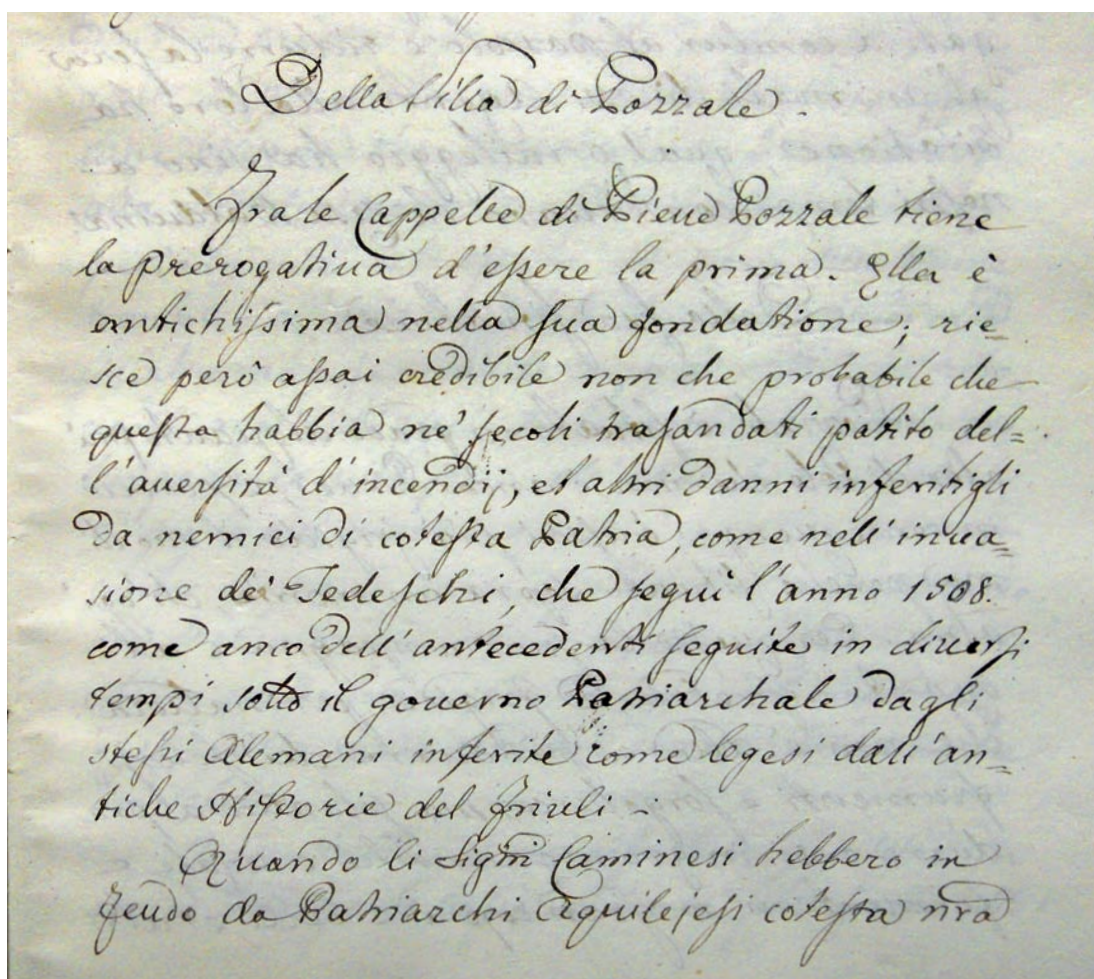 Della Villa di Pozzale.
Frale Cappelle di Pieue Pozzale tiene
la prerogatiua d'eſsere la prima. Ella è
antichiſsima nella ſua fondatione; rie=
sce però aſsai credibile non che probabile che
queſta habbia ne' ſecoli traſandati patito del=
l'auerſità d'incendij, et altri danni inferitigli
da nemici di coteſta Patria, come nell'inua=
sione de' Tedeſchi, che ſeguì l'anno 1508.
come anco dell'antecedenti ſeguite in diuerſi
tempi sotto il gouerno Patriarchale dagli
steſsi Alemani inferite come legesi dall'an=
tiche Hiſtorie del Friuli -
Quando li Sigri Caminesi hebbero in
feudo da Patriarchi Aquilejeſi coteſta nra